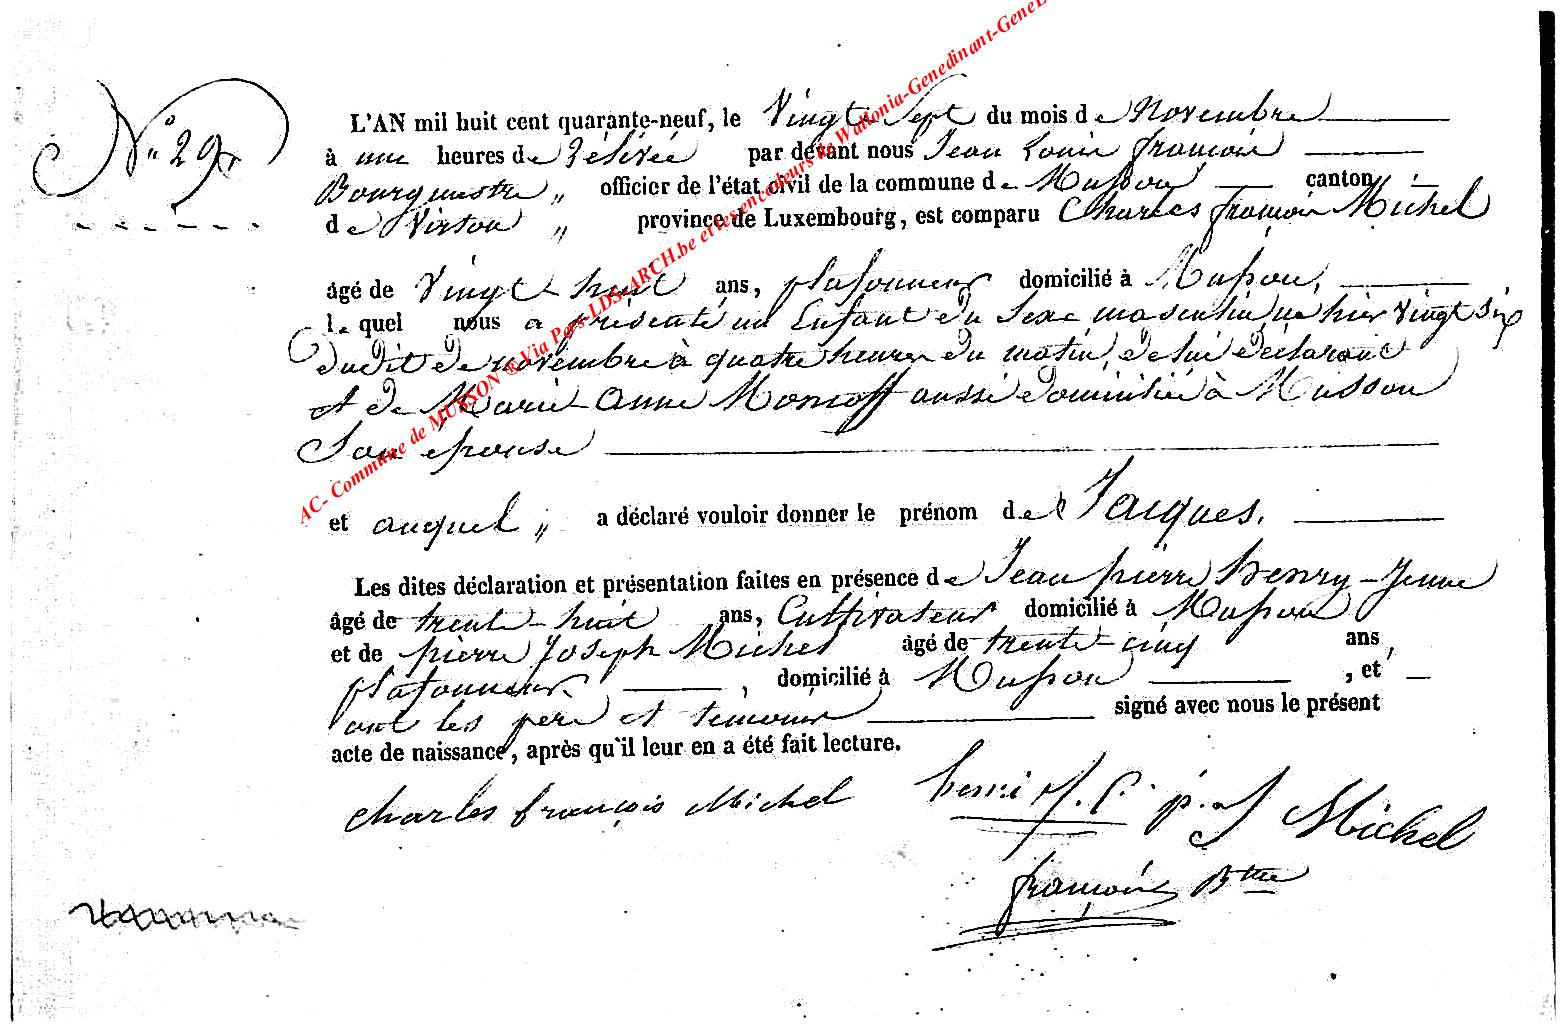 N° 29
L'AN mil huit cent quarante-neuf, le Vingt Sept du mois de Novembre
à une heures de rélévée par devant nous Jean Louis françois
Bourgmestre „ officier de l'état civil de la commune de Musson canton
de Virton „ province de Luxembourg, est comparu Charles françois Michel
âgé de Vingt-huit ans, plafonneur domicilié à Musson,
le quel nous a présenté un Enfant du Sexe masculin, né hier vingt Six
dudit de novembre à quatre heures du matin, de lui déclarant
et de Marie-Anne aussi domiciliée à Musson
Son épouse
et auquel „ a déclaré vouloir donner le prénom de Jacques.
Les dites déclaration et présentation faites en présence de Jean pierre Henry-Jeune
âgé de trente-huit ans, Cultivateur domicilié à Musson
et de pierre Joseph Michel âgé de trente-cinq ans,
plafonneur, domicilié à Musson, et
ont les père et temoins signé avec nous le présent
acte de naissance, après qu'il leur en a été fait lecture.
charles françois Michel henri j. p. p. J Michel
françois Btre
AC- Commune de MUSSON ® Via Pers-LDS-ARCH.be et les encodeurs de Wallonia-Genedinant-GeneL